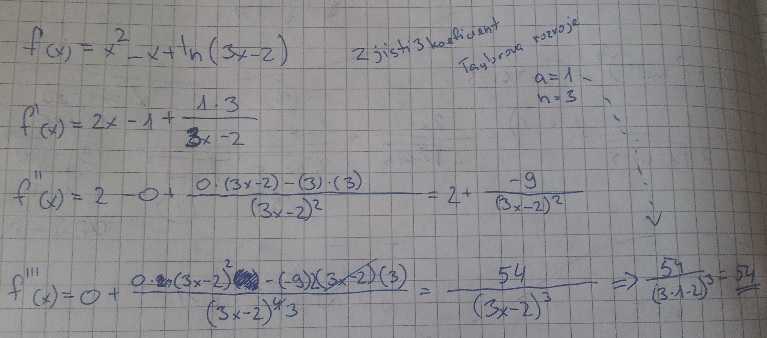 f(x) = x² - x + ln(3x-2)
Zjisti 3 koeficient
Taylorova rozvoje
a = 1
n = 3
f'(x) = 2x - 1 + (1·3)/(3x-2)
f''(x) = 2 - 0 + (0·(3x-2) - (3)·(3))/(3x-2)² = 2 + (-9)/(3x-2)²
f'''(x) = 0 + (0·(3x-2)² - (-9)(3x-2)(3))/(3x-2)⁴ 3 = 54/(3x-2)³ => 54/(3·1-2)³ = 54